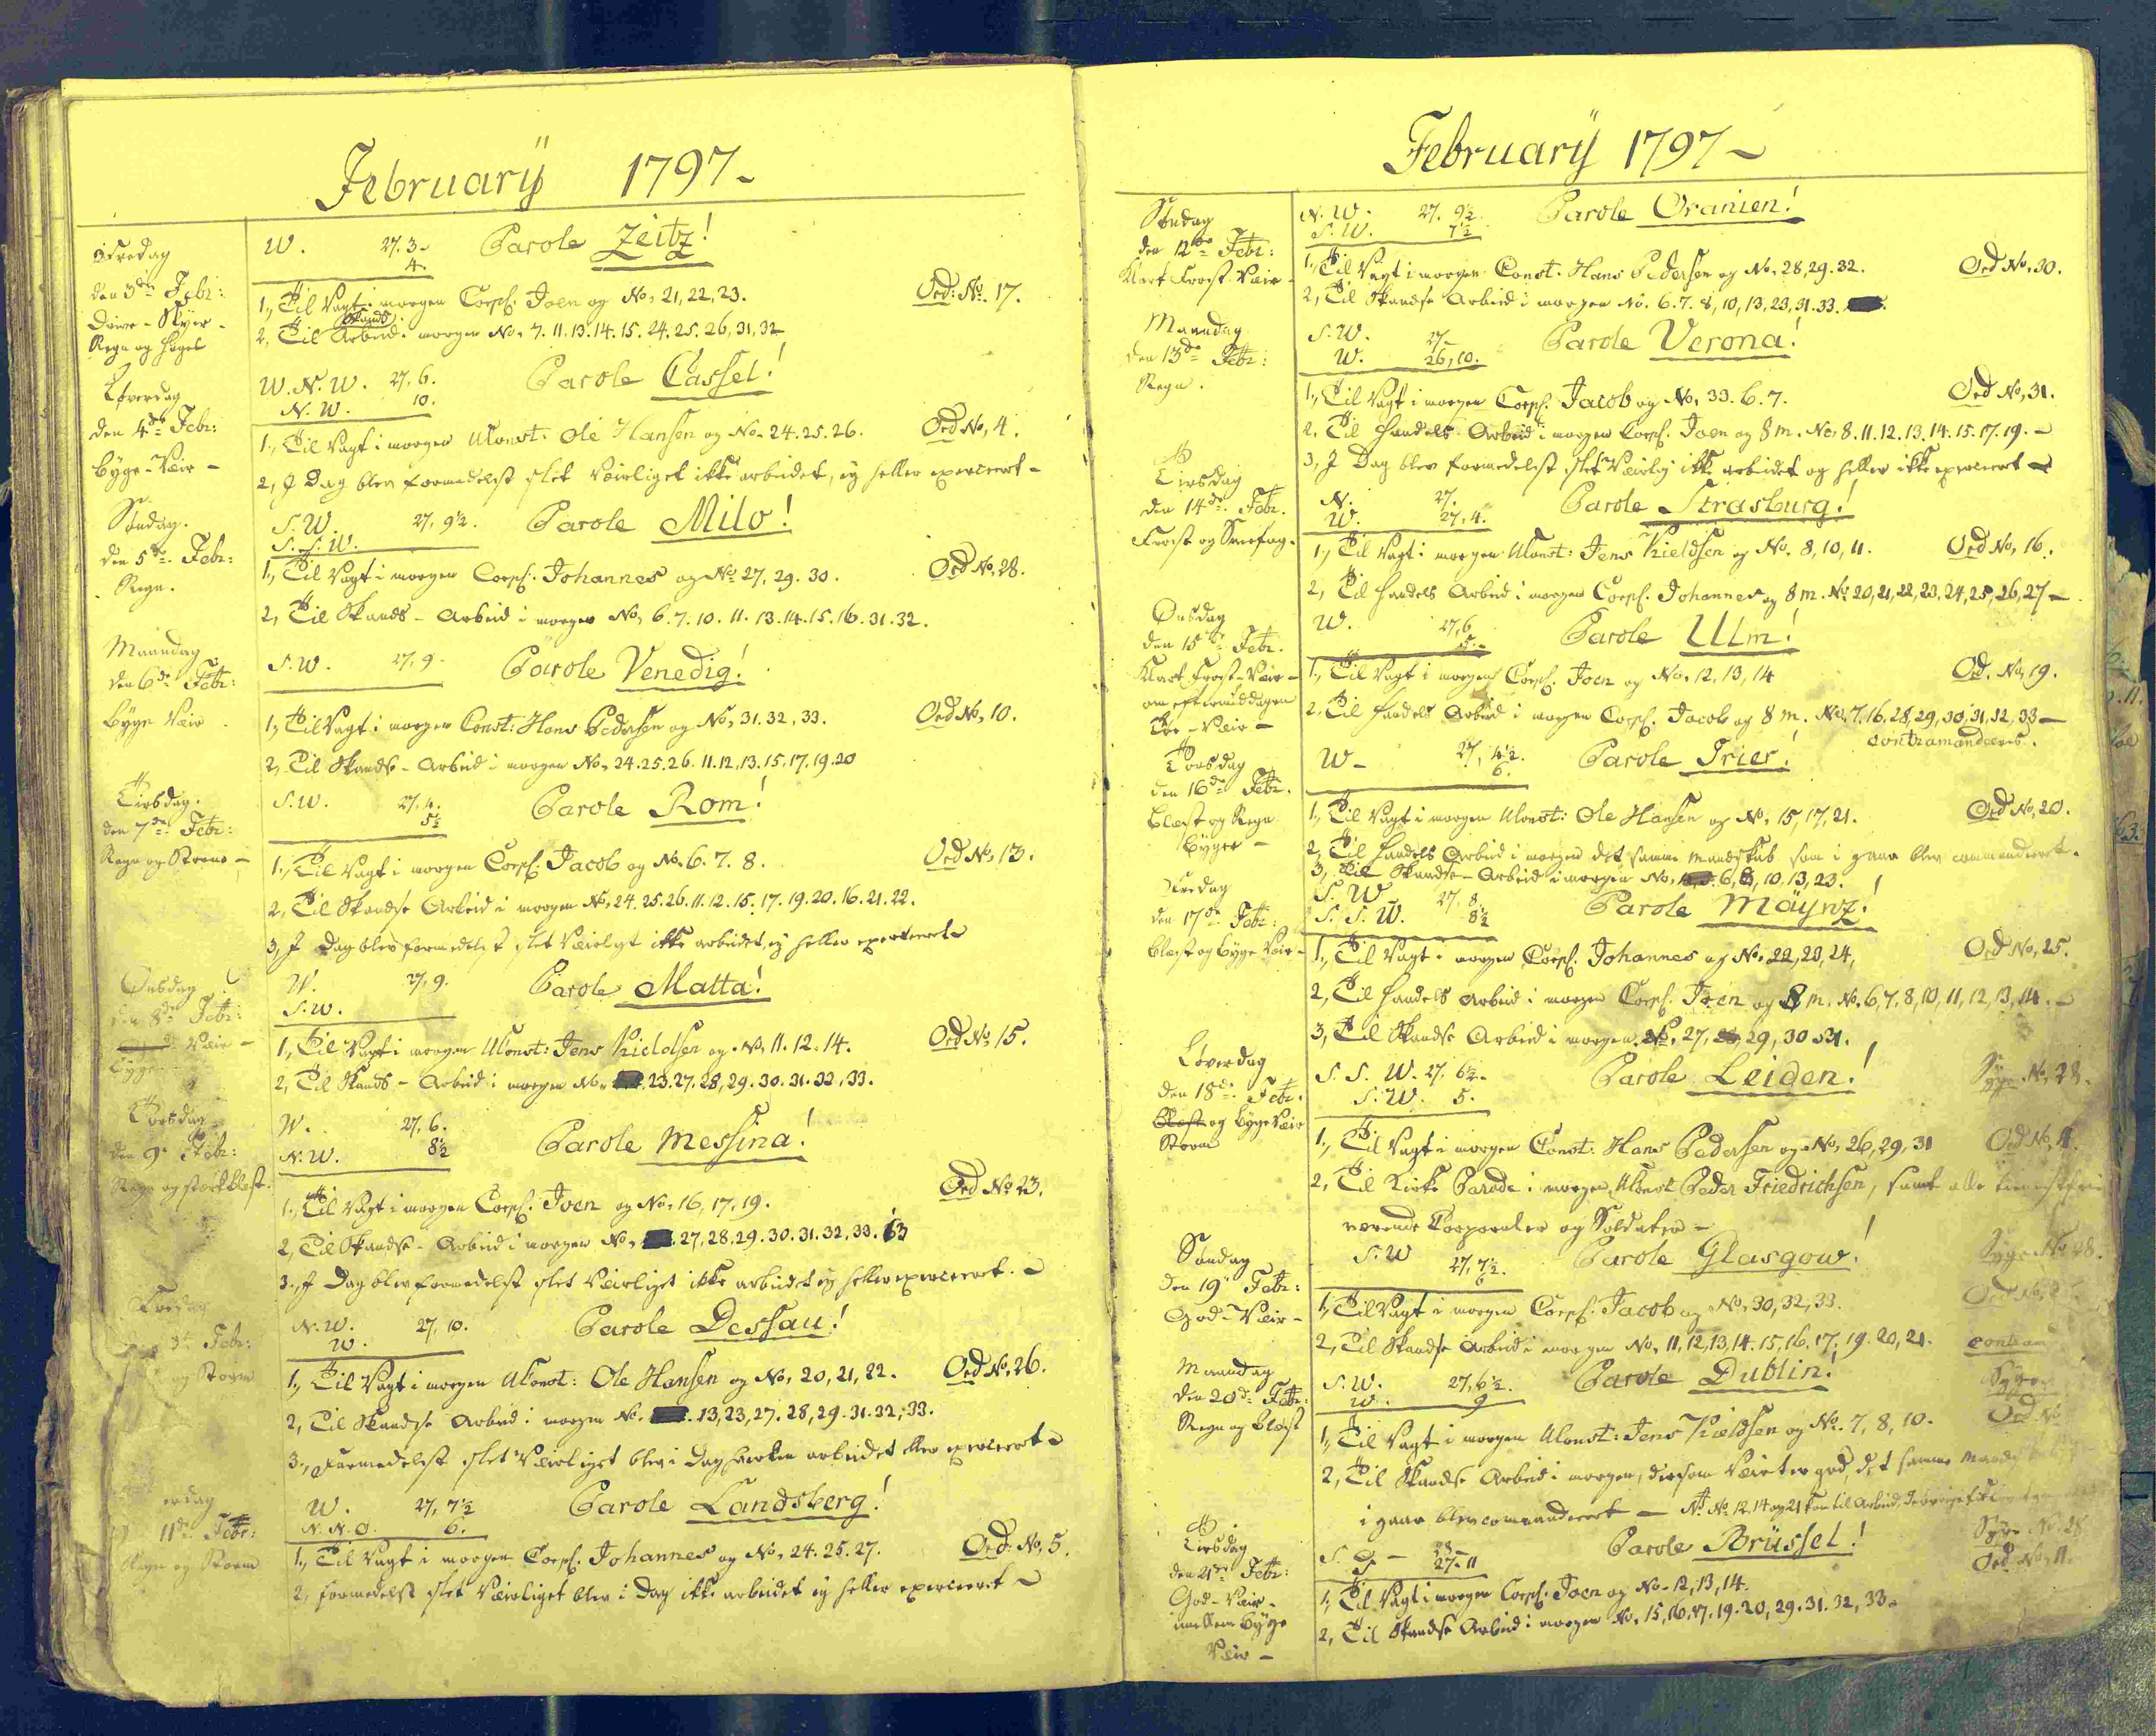 February 1797
Fredag
den 3de Febr:
Drive-Skyer-
Regn og Hagel
W. 27.3- Parole Zeitz!
4.
1, Til Vagt i morgen Corpl. Joen og No, 21, 22, 23. Ord: No. 17.
Skands
2, Til Arbeid i morgen No, 7. 11. 13. 14. 15. 24. 25. 26, 31, 32
Løverdag
den 4de Febr:
Byge-Veir-
W.N.W. 27, 6. Parole Cassel!
N.W. 10.
1, Til Vagt i morgen UConst: Ole Hansen og No. 24. 25. 26. Ord No, 4.
2, I Dag blev formedelst slet Veirliget ikke arbeidet, ey heller exerceret-
Søndag.
den 5de Febr:
Regn.
S.W. 27, 9½. Parole Milo!
S.S.W.
1, Til Vagt i morgen Corpl. Johannes og No 27, 29. 30. Ord No, 28.
2, Til Skands-Arbeid i morgen No, 6. 7. 10. 11. 13. 14. 15. 16. 31. 32.
Maandag
den 6de Febr:
Byge Veir
S.W. 27, 9. Parole Venedig!
1, Til Vagt i morgen Const: Hans Pedersen og No, 31. 32, 33. Ord No, 10.
2, Til Skandse-Arbeid i morgen No, 24. 25. 26. 11. 12, 13. 15, 17. 19. 20
Tirsdag.
den 7de Febr:
Regn og Storm-
S.W. 27, 4. Parole Rom!
5½
1, Til Vagt i morgen Corpl. Jacob og No. 6. 7. 8. Ord No, 13.
2, Til Skandse Arbeid i morgen No, 24. 25. 26. 11. 12. 15. 17. 19. 20. 16. 21. 22.
3, I Dag blev formedelst slet Veirligt ikke arbeidet, ey heller exerceret
Onsdag
den 8de Febr:
Veir-
Byge
W. 27, 9. Parole Malta!
S.W.
1, Til Vagt i morgen UConst: Jens Kieldsen og No, 11. 12. 14. Ord No 15.
2, Til Skands-Arbeid i morgen No, 23. 27. 28, 29. 30. 31. 32, 33.
Torsdag
den 9de Febr:
Regn og stærk blæst.
W. 27, 6. Parole Messina!
N.W. 8½
1, Til Vagt i morgen Corpl. Joen og No, 16, 17, 19. Ord No 23.
2, Til Skandse-Arbeid i morgen No, 27, 28. 29. 30. 31. 32, 33. 13
3, I Dag blev formedelst slet Veirliget ikke arbeidet ey heller exerceret.
Fredag
Febr:
og Storm
N.W. 27, 10. Parole Dessau!
W.
1, Til Vagt i morgen UConst: Ole Hansen og No, 20, 21, 22. Ord No, 26.
2, Til Skandse Arbeid i morgen No. 13, 23, 27. 28, 29. 31. 32, 33.
3, Formedelst slet Veirliget blev i Dag hverken arbeidet eller exerceret
erdag
11de Febr:
Regn og Storm
W. 27, 7½ Parole Landsberg!
N.N.O. 6.
1, Til Vagt i morgen Corpl. Johannes og No, 24. 25. 27. Ord: No, 5.
2, formedelst slet Veirliget blev i Dag ikke arbeidet ey heller exerceret
February 1797
Søndag
den 12te Febr:
Klart Frost-Veir-
N.W. 27. 9½ Parole Oranien!
S.W. 7½
1, Til Vagt i morgen Const. Hans Pedersen og No, 28, 29. 32. Ord No, 30.
2, Til Skandse Arbeid i morgen No. 6. 7. 8, 10, 13, 23, 31. 33.
Maandag
den 13de Febr:
Regn.
S.W. 27- Parole Verona!
W. 26, 10.
1, Til Vagt i morgen Corpl. Jacob og No, 33. 6. 7. Ord No, 31.
2, Til Handels-Arbeid i morgen Corpl. Joen og 8 m. No, 8. 11. 12. 13. 14. 15. 17. 19.-
3, I Dag blev formedelst slet Veirlig ikke arbeidet og heller ikke exerceret
Tirsdag
den 14de Febr.
Frost og Sneefog.
N. 27. Parole Strasburg!
W. 27, 4.
1, Til Vagt i morgen UConst: Jens Kieldsen og No. 8, 10, 11. Ord No, 16.
2, Til Handels Arbeid i morgen Corpl. Johannes og 8 m. No 20, 21, 22, 23, 24, 25, 26, 27-
Onsdag
den 15de Febr.
Klart Frost-Veir-
om eftermiddagen
Tøe-Veir-
W. 27, 6 Parole Ulm!
5.-
1, Til Vagt i morgen Corpl. Joen og No, 12, 13, 14 Od. No, 19.
2, Til Handels Arbeid i morgen Corpl. Jacob og 8 m. No, 7. 16. 28, 29, 30, 31, 32, 33-
contramanderes.
Torsdag
den 16de Febr.
Blæst og Regn
Byger-
W- 27, 4½. Parole Trier!
6.
1, Til Vagt i morgen UConst: Ole Hansen og No, 15, 17, 21. Ord No, 20.
2, Til Handels Arbeid i morgen det samme Mandskab som i gaar blev commanderet.
3, Til Skandse-Arbeid i morgen No, 6, 8, 10, 13, 23.
Fredag
den 17de Febr:
blæst og Byge Veir-
S.W 27, 8 Parole Maÿnz!
S.S.W. 8½
1, Til Vagt i morgen Corpl. Johannes og No, 22, 23, 24, Ord No, 25.
2, Til Handels Arbeid i morgen Corpl. Joen og 8 m. No, 6, 7, 8, 10, 11, 12, 13, 14.-
3, Til Skandse Arbeid i morgen No, 27, 28, 29, 30 31.
Løverdag
den 18de Febr.
Blæst og Byge Veir
Storm
S.S.W. 27, 6½- Parole Leiden! Syge No, 28
S.W. 5.
1, Til Vagt i morgen Const: Hans Pedersen og No, 26, 29, 31 Ord No, 4.
2, Til Kirke Parade i morgen UConst Peder Friedrichsen, samt alle tieneste frie
værende Corporaler og Soldater-
Søndag
den 19de Febr:
God-Veir-
S.W 27, 7½. Parole Glasgow! Syge No 28.
6
1, Til Vagt i morgen Corpl: Jacob og No, 30, 32, 33. Ord No,
2, Til Skandse Arbeid i morgen No, 11, 12, 13, 14. 15, 16, 17. 19. 20, 21. contram
Maandag
den 20de Febr:
Regn og Blæst
S.W. 27, 6½. Parole Dublin! Syge
W. 9
1, Til Vagt i morgen UConst: Jens Kieldsen og No. 7, 8, 10. Ord No
2, Til Skandse Arbeid i morgen, dersom Veiret er god, det samme Mandsk
i gaar blev commanderet- No 12, 14 og 21 kom til Arbeid,
Tirsdag
den 21de Febr:
God-Veir-
imellem Byge
Veir-
S.O- 28- Parole Brüssel! Syge No 28
27-11 Ord No, 11.
1, Til Vagt i morgen Corpl. Joen og No-12, 13, 14.
2, Til Skandse Arbeid i morgen No, 15, 16, 17. 19. 20, 29. 31. 32, 33.